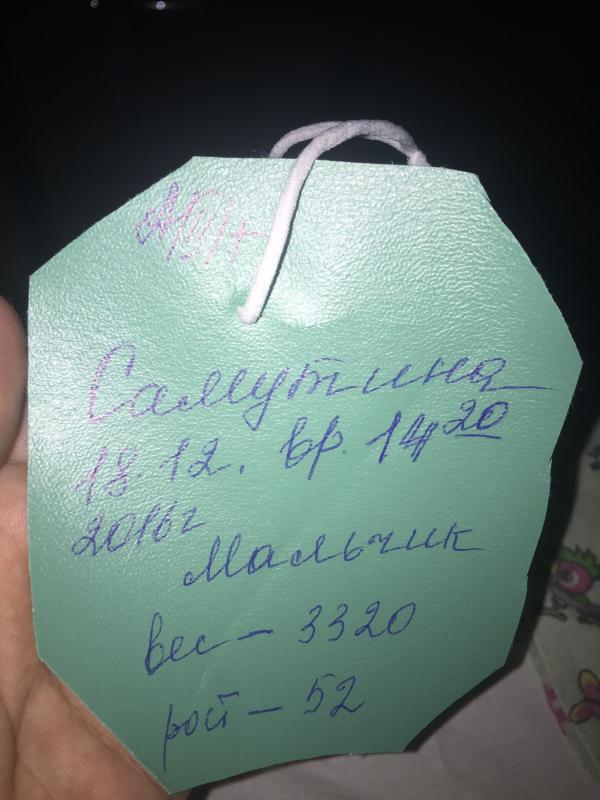 Самутина
18.12. вр. 14 20
2016г
Мальчик
вес – 3320
рост – 52